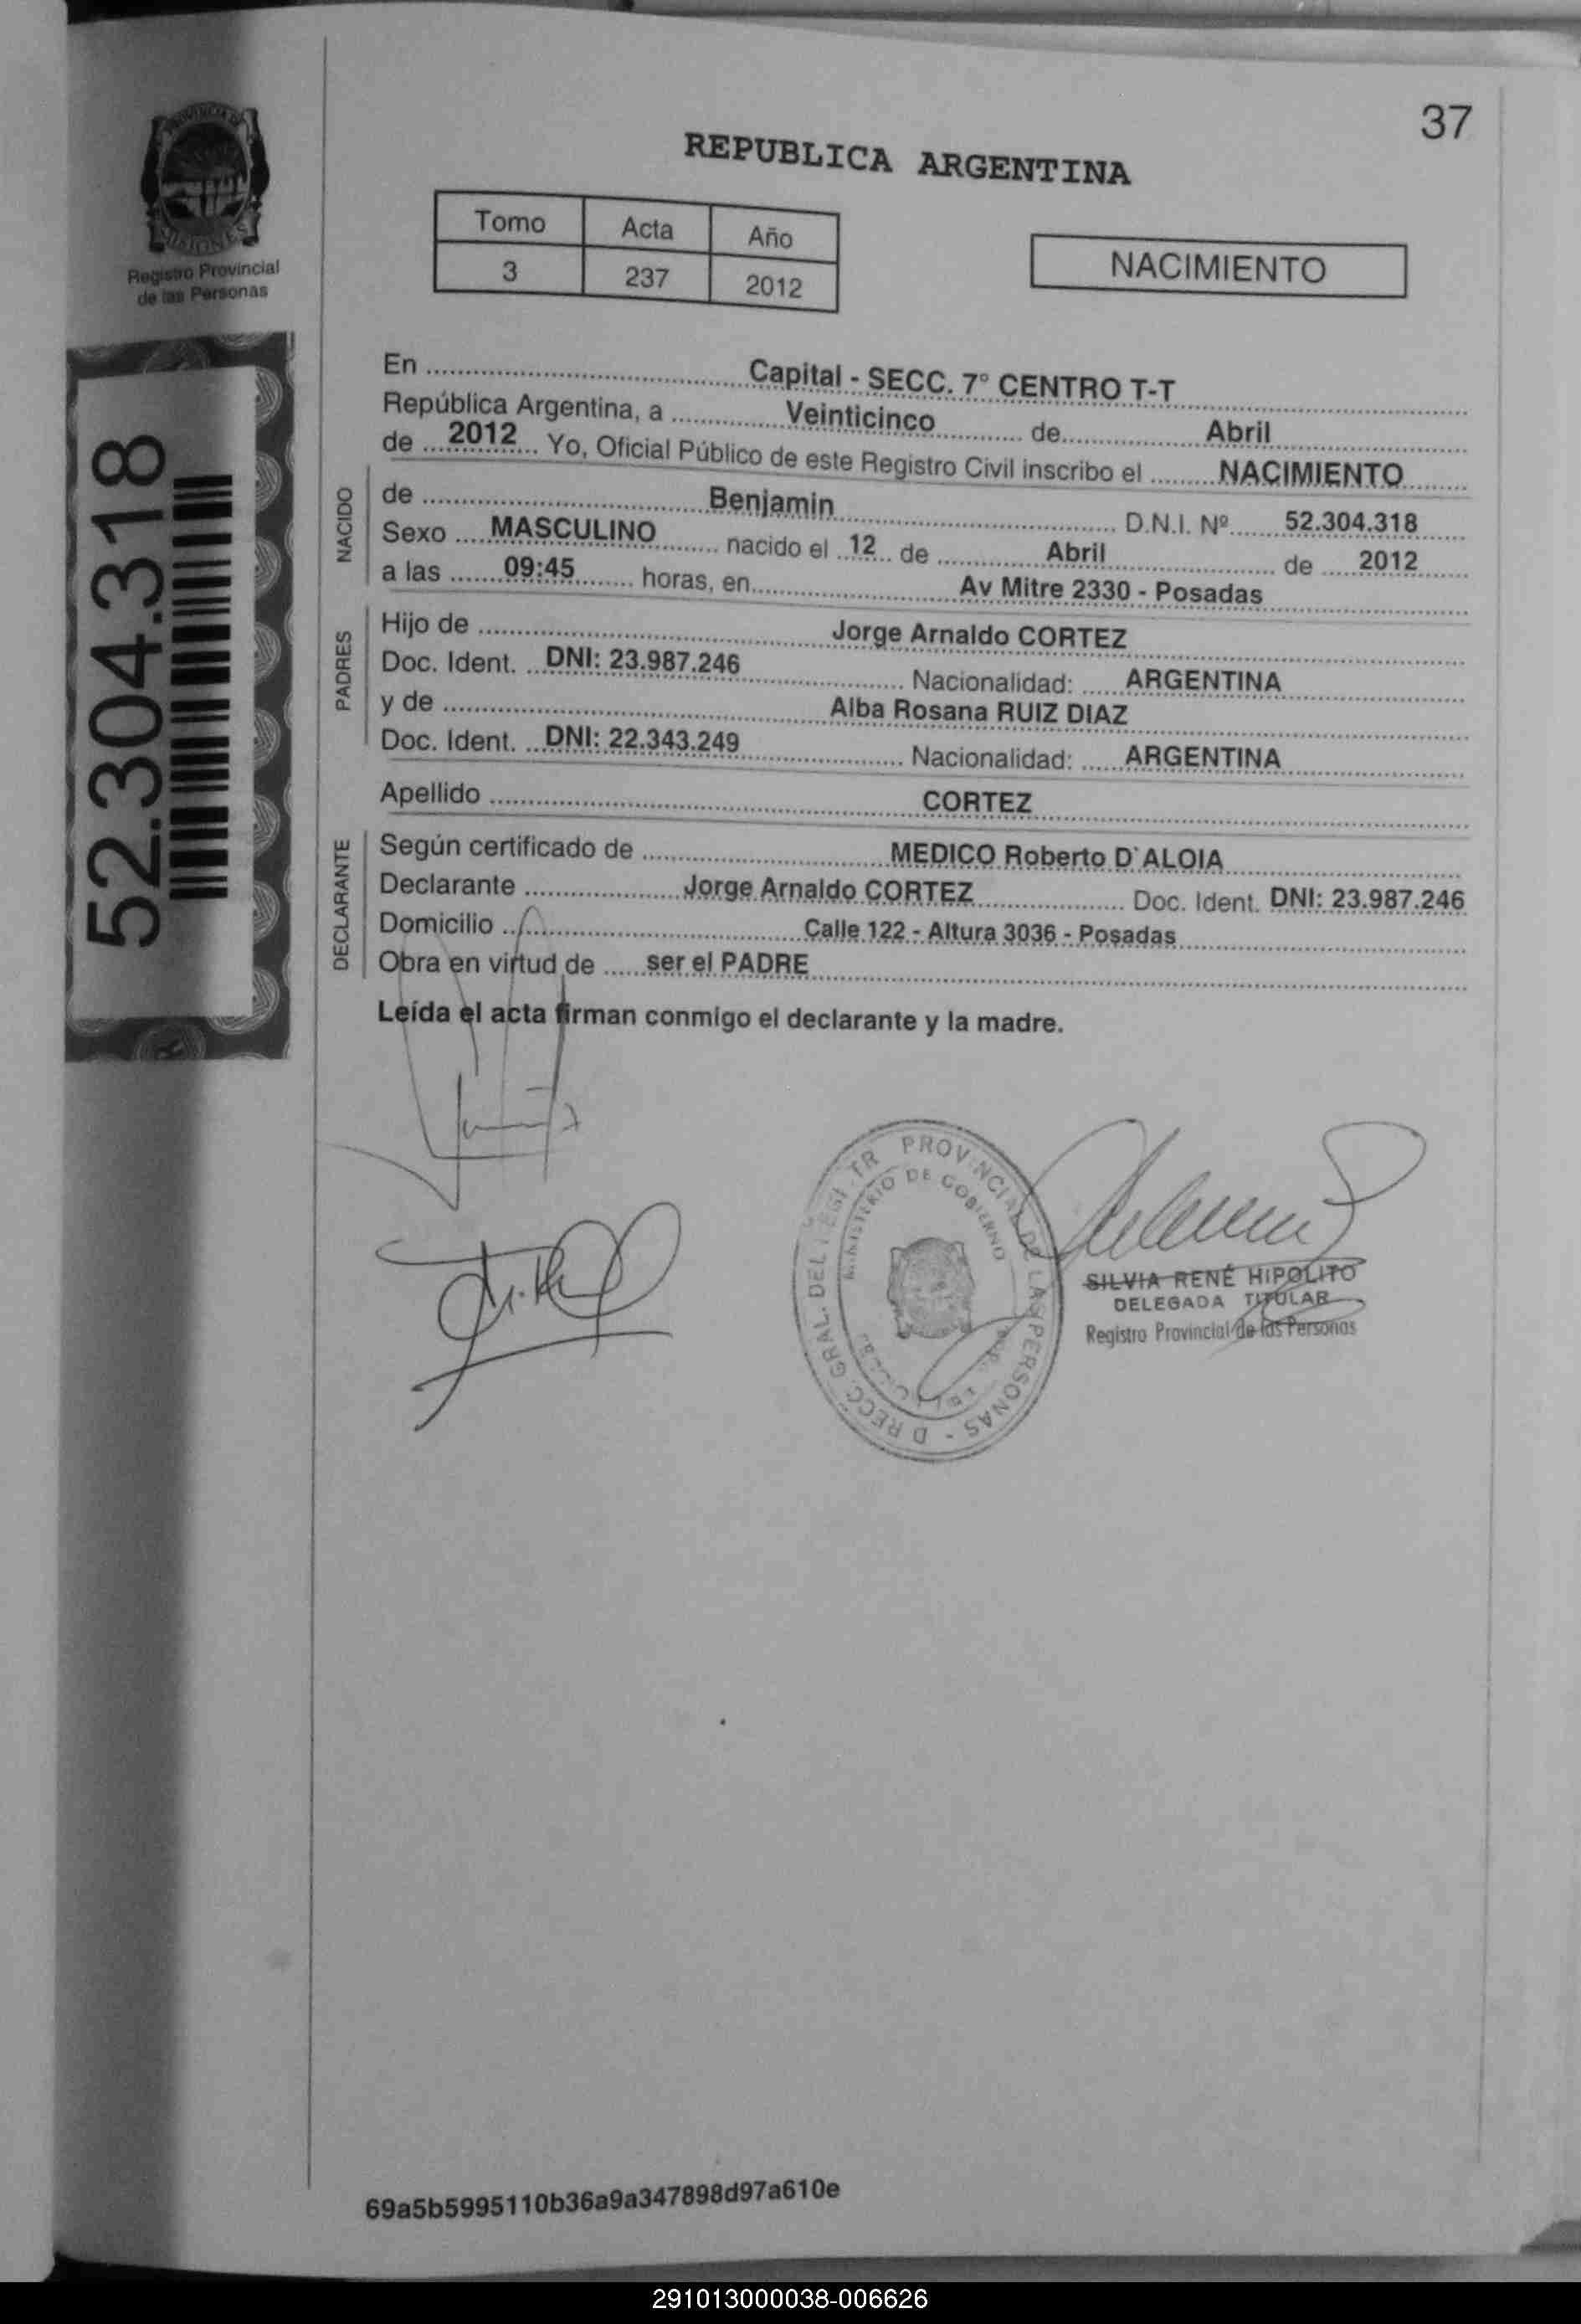 37
PROVINCIA DE
MISIONES
Registro Provincial
de las Personas
REPUBLICA ARGENTINA
Tomo Acta Año
3 237 2012
NACIMIENTO
52.304.318
En Capital - SECC. 7° CENTRO T-T
República Argentina, a Veinticinco de Abril
de 2012 Yo, Oficial Público de este Registro Civil inscribo el NACIMIENTO
NACIDO
de Benjamin D.N.I. Nº 52.304.318
Sexo MASCULINO nacido el 12 de Abril de 2012
a las 09:45 horas, en Av Mitre 2330 - Posadas
PADRES
Hijo de Jorge Arnaldo CORTEZ
Doc. Ident. DNI: 23.987.246 Nacionalidad: ARGENTINA
y de Alba Rosana RUIZ DIAZ
Doc. Ident. DNI: 22.343.249 Nacionalidad: ARGENTINA
Apellido CORTEZ
DECLARANTE
Según certificado de MEDICO Roberto D`ALOIA
Declarante Jorge Arnaldo CORTEZ Doc. Ident. DNI: 23.987.246
Domicilio Calle 122 - Altura 3036 - Posadas
Obra en virtud de ser el PADRE
Leída el acta firman conmigo el declarante y la madre.
PROVINCIAL DE LAS PERSONAS
GRAL. DEL
MINISTERIO DE GOBIERNO
SILVIA RENÉ HIPOLITO
DELEGADA TITULAR
Registro Provincial de las Personas
69a5b5995110b36a9a347898d97a610e
291013000038-006626